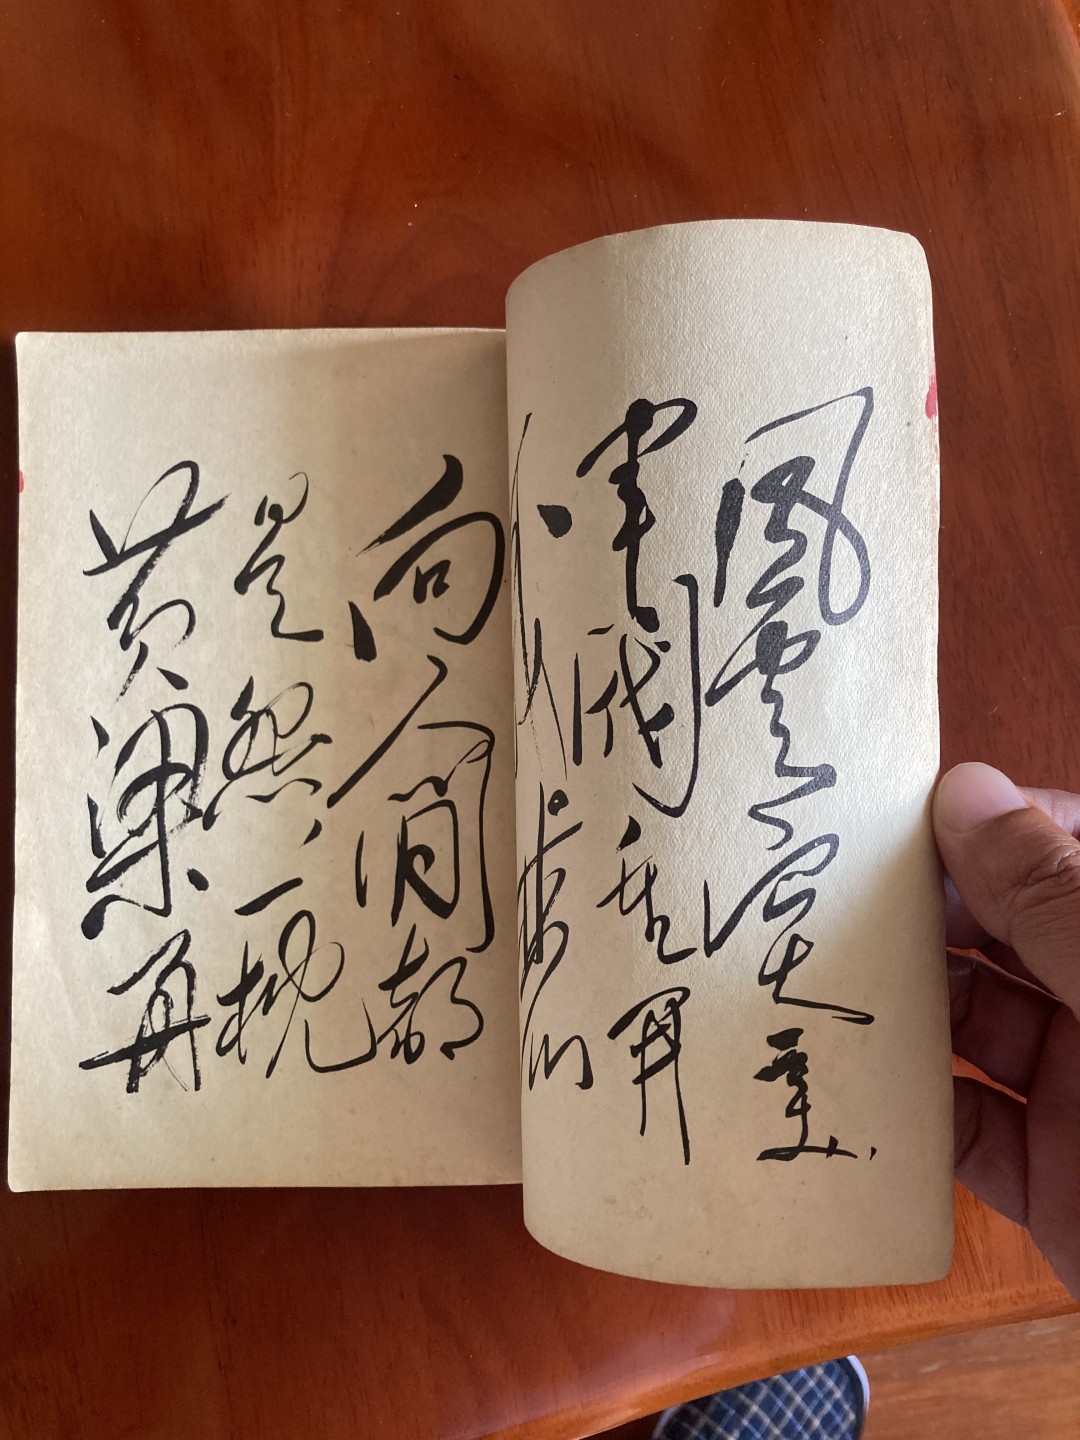 風雲突變
軍閥重開
向人間都
是怨一枕
黄粱再